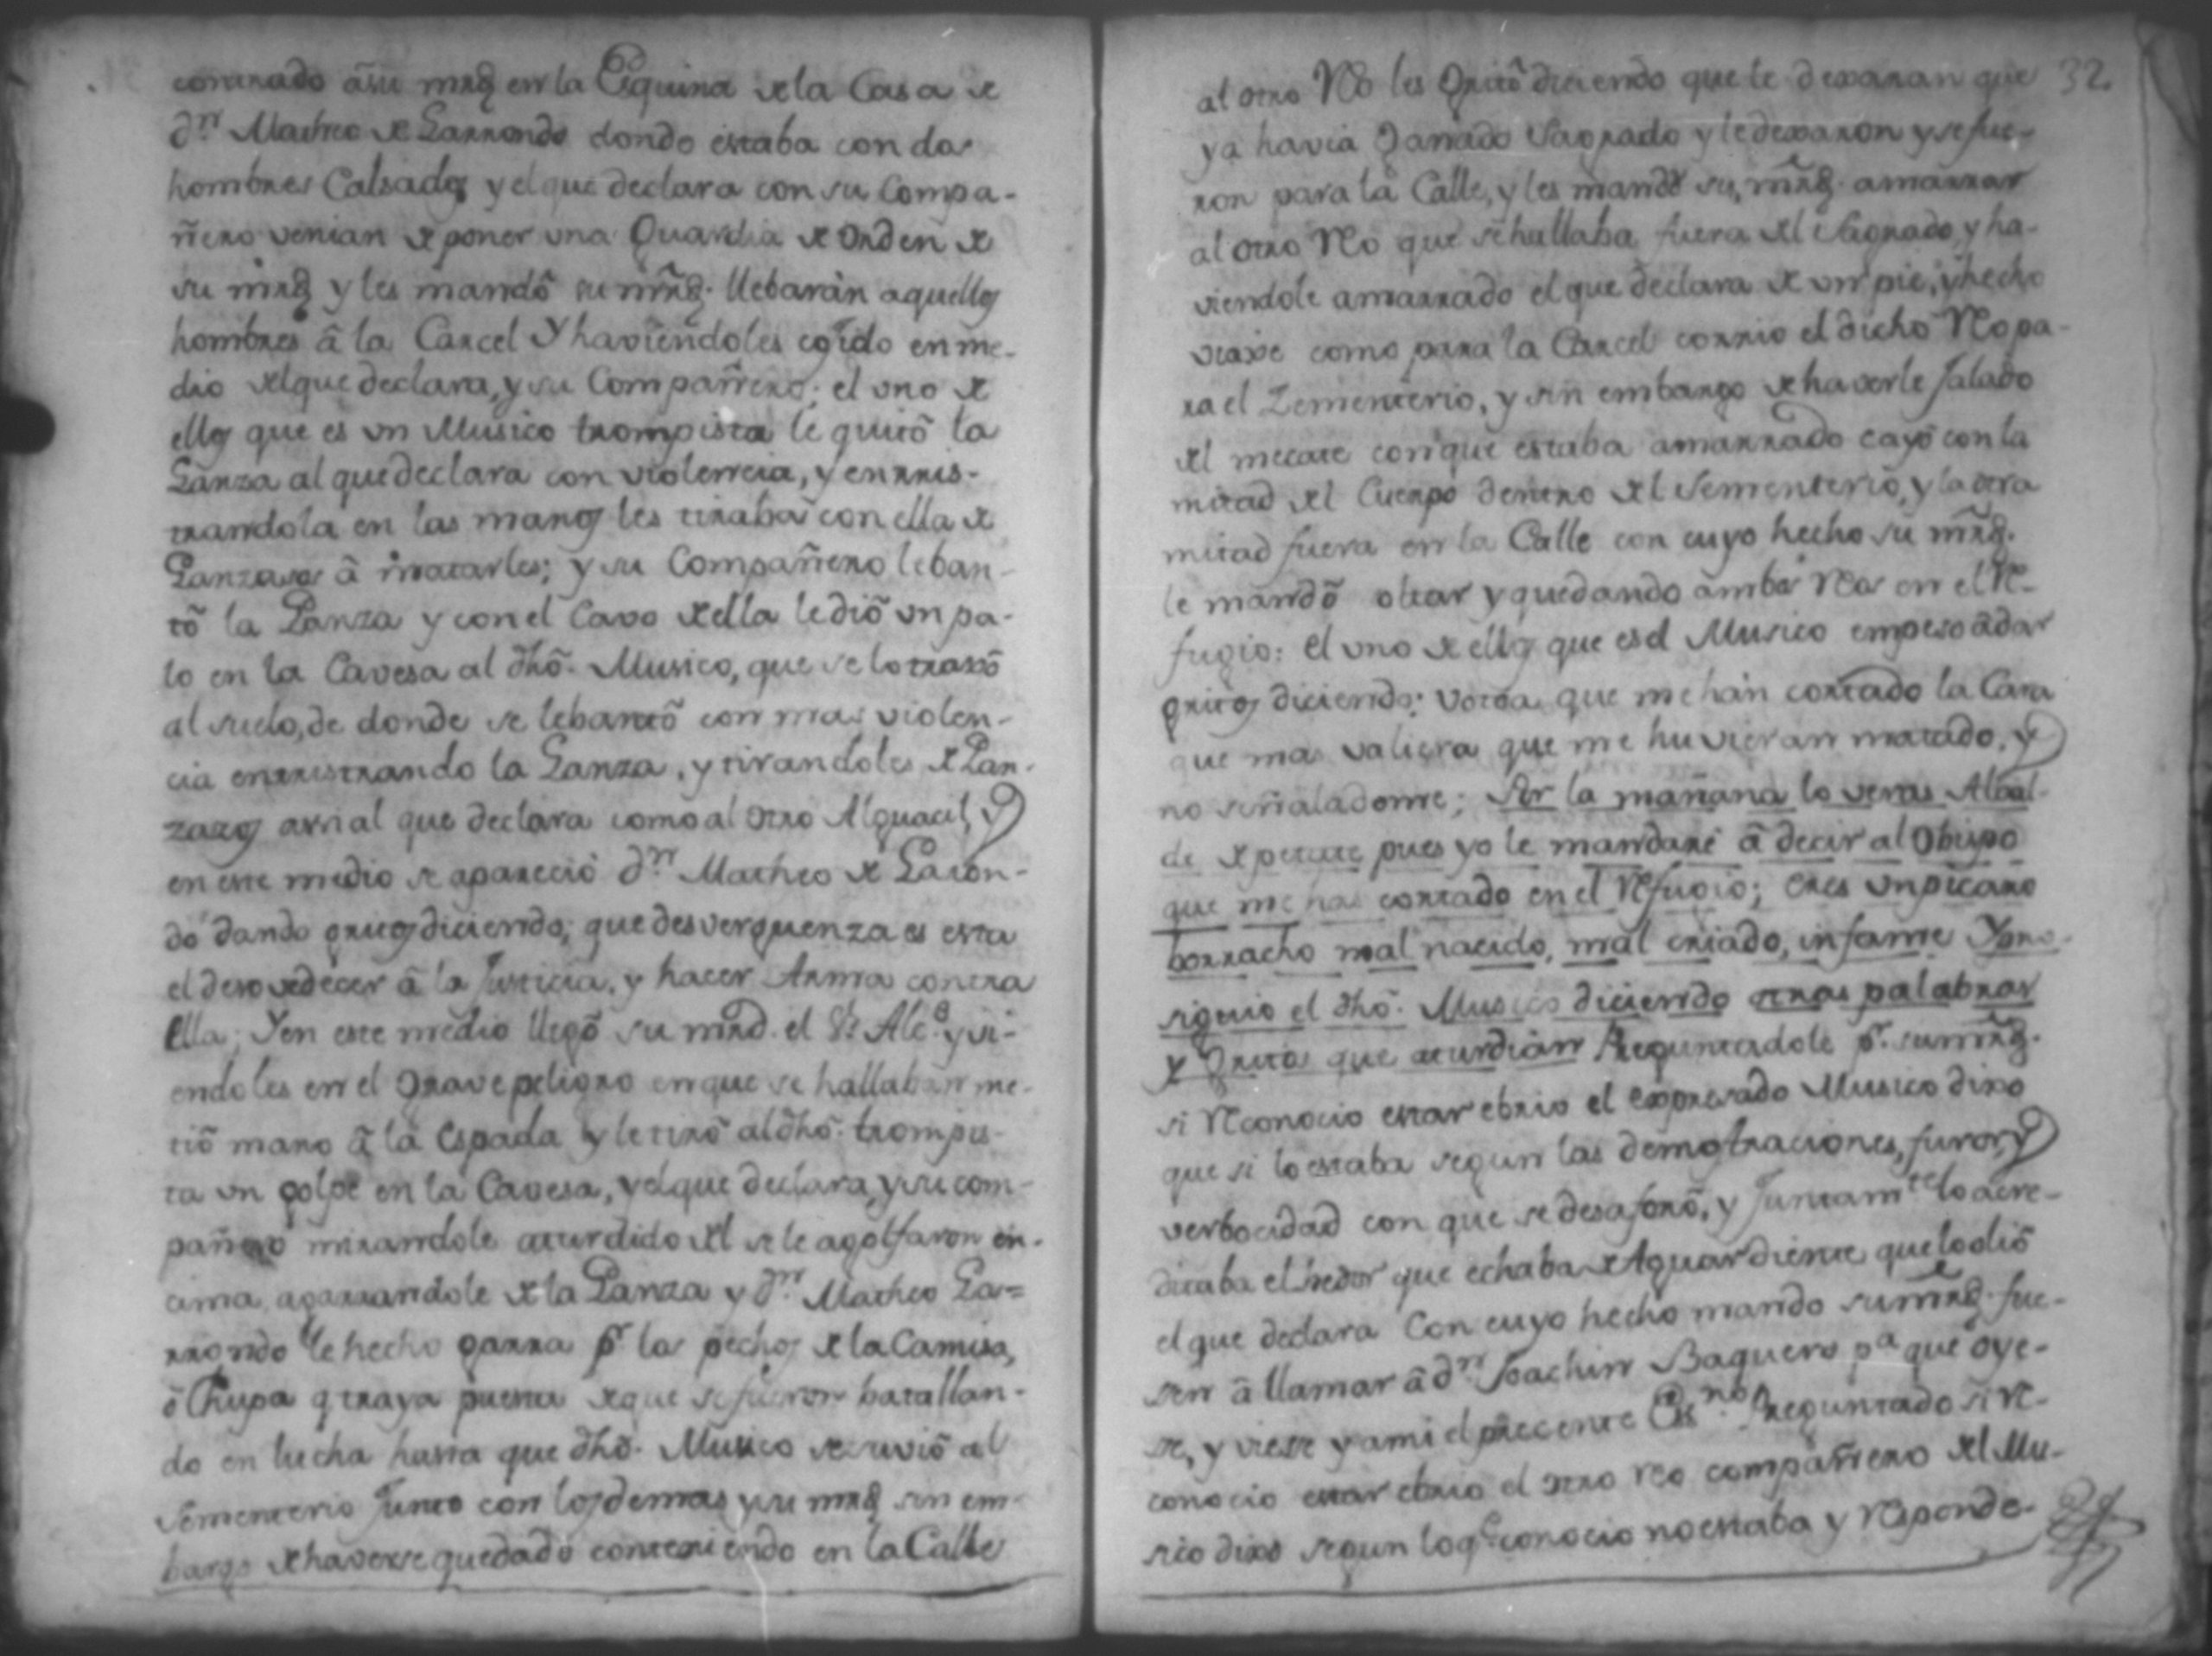 contrado â su mrd en la Esquina de la Casa de
dn. Matheo de Larrondo donde estaba con dos
hombres Calsados y el que declara con su Compa-
ñero venian de poner una Guardia de orden de
su mrd y les mandô su mrd. llebarán aquellos
hombres â la Carcel Y haviendoles cojido en me-
dio del que declara, y su Compañero; el uno de
ellos que es un Musico trompista le quitô la
Lanza al que declara con violencia, y enrris-
trandola en las manos les tiraba con ella de
Lanzasos â matarles; y su Compañero leban-
tô la Lanza y con el Cavo de ella le diô un pa-
lo en la Cavesa al dhô. Musico, que se lo traxô
al suelo, de donde se lebantô con mas violen-
cia enrristrando la Lanza, y tirandoles de Lan-
zazos asi al que declara como al otro Alguacil, y
en este medio se apareció dn. Matheo de Laron-
do dando gritos diciendo; que desverguenza es esta
el desovedecer â la Justicia, y hacer Arma contra
ella; Y en este medio llegô su mrd. el Sr. Alce. y vi-
endoles en el grave peligro en que se hallaban me-
tiô mano â la Espada y le tirô al dhô. trompis-
ta un golpe en la Cavesa, y el que declara, y su com-
pañero mirandole aturdido del se le agolfaron en-
cima agarrandole de la Lanza y dn. Matheo La=
rrondo le hecho garra pr. los pechos de la Camisa,
ô Chupa q traya puesta de que se fueron batallan-
do en lucha hasta que dhô. Musico se subiô al
Sementerio Junto con los demas y su mrd sin em-
bargo de haverse quedado conteniendo en la Calle
32.
al otro Reo les Gritô diciendo que le dexaran que
ya havia Ganado Sagrado y le dexaron y se fue-
ron para la Calle, y les mandô su mrd. amarrar
al otro Reo que se hallaba fuera del Sagrado, y ha-
viendole amarrado el que declara de un pie, y hecho
viaxe como para la Carcel corrio el dicho Reo pa-
ra el Zementerio, y sin embargo de haverle Jalado
del mecate con que estaba amarrado cayô con la
mitad del Cuerpo dentro del Sementerio, y la otra
mitad fuera en la Calle con cuyo hecho su mrd.
le mandô soltar y quedando ambos Reos en el Re-
fugio: el uno de ellos que es el Musico empeso â dar
gritos diciendo: que me hán cortado la Cara
que mas valiera que me huvieran matado, y
no señaladome; Por la mañana lo veras Alcal-
de de petate pues yo le mandaré â decir al Obispo
que me has cortado en el Refugio; eres un picaro
borracho mal nacido, mal criado, infame Y pro-
siguio el dhô. Musico diciendo otras palabras
y Gritos que aturdian Preguntadole pr. su mrd.
si Reconocio estar ebrio el expresado Musico dixo
que si lo estaba segun las demostraciones, furor, y
verbocidad con que se desaforô, y Juntamte. lo acre-
ditaba el hedor que echaba de Aguardiente que lo oliô
el que declara Con cuyo hecho mando su mrd. fue-
sen â llamar â dn. Joachin Baquero pa. que oye-
se, y viese y a mi el precente Essno. Preguntado si Re-
conocio estar ebrio el otro reo compañero del Mu-
sico dixo segun lo qe. conocio no estaba y Responde-